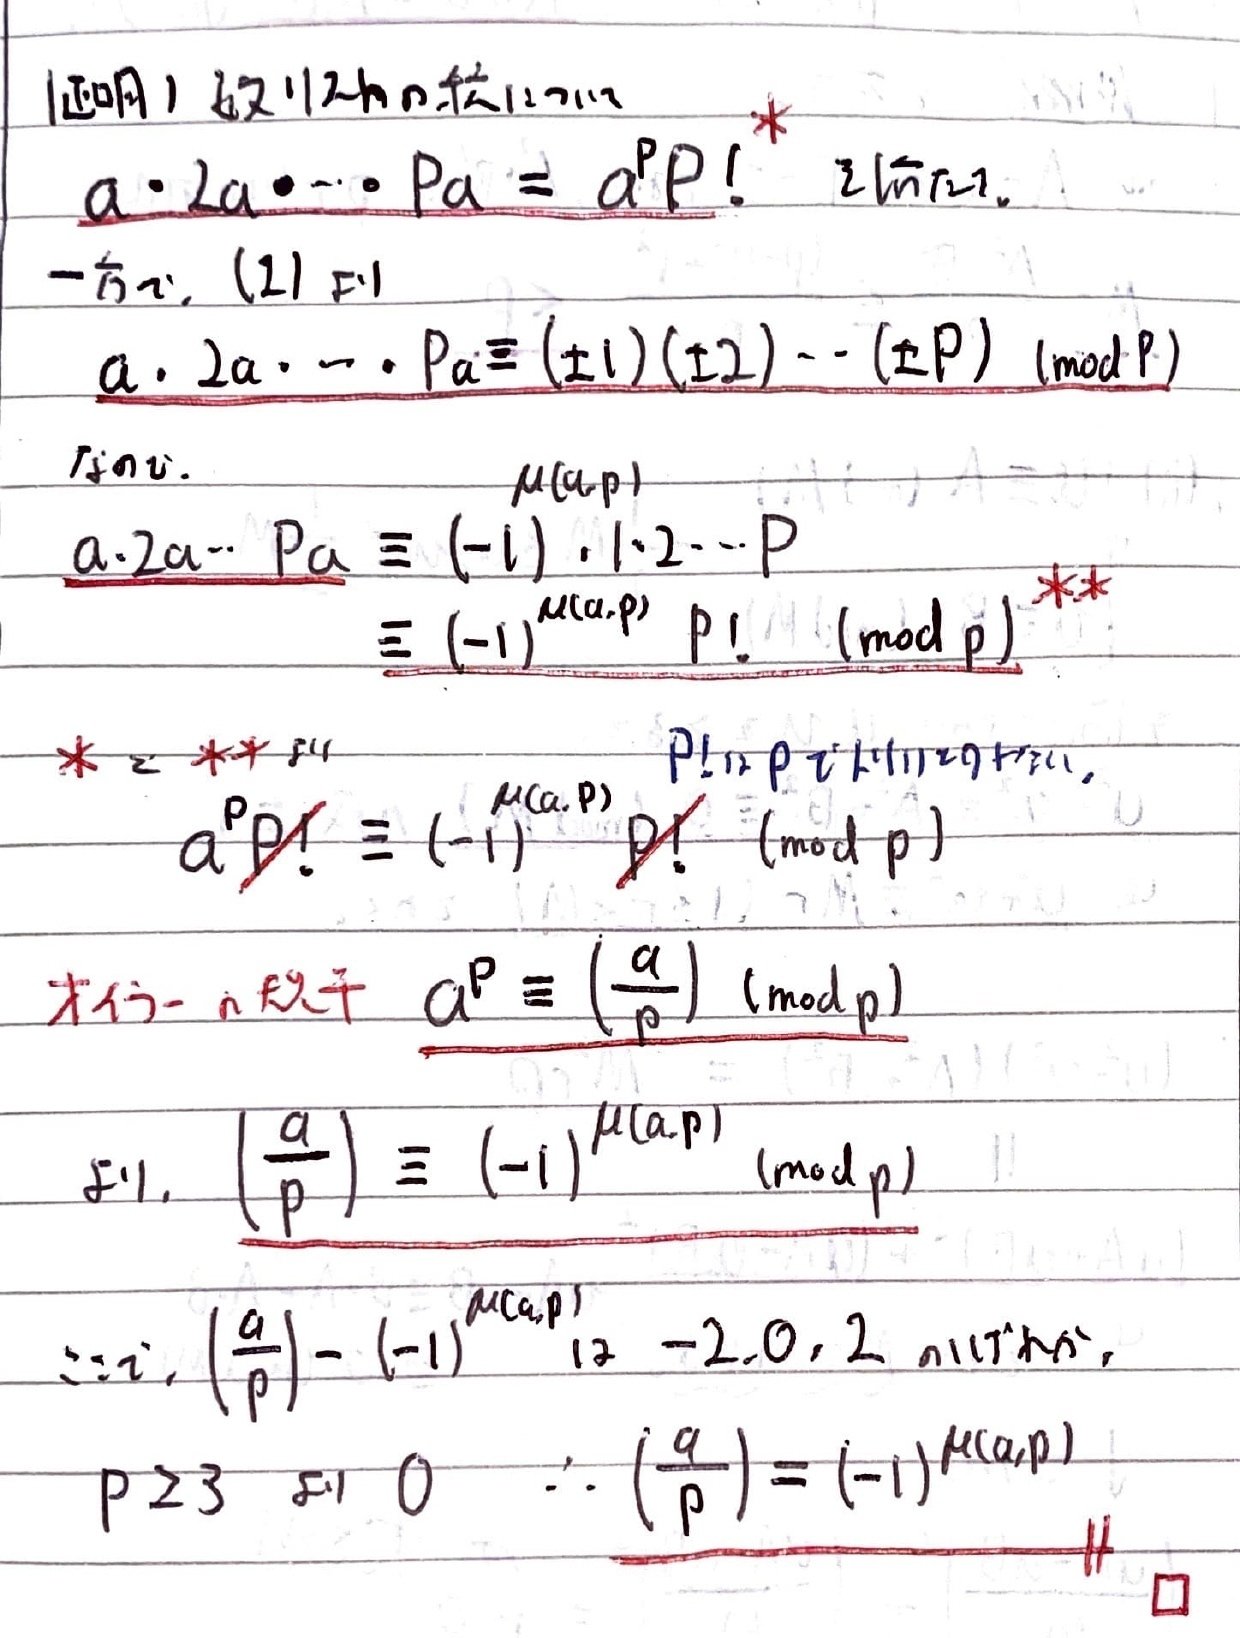 証明) 数リストの積について
a・2a・…・Pa = a^P P! * を倍たて、
一方で、(2)より
a・2a・…・Pa ≡ (±1)(±2)‥(±P) (mod P)
なので、
a・2a‥Pa ≡ (-1)^μ(a,p)・1・2…P
≡ (-1)^μ(a,p) P! (mod p) **
* と ** より P!はpで
a^P P! ≡ (-1)^μ(a,p) P! (mod p)
オイラーの規準 a^P ≡ (a/p) (mod p)
より、(a/p) ≡ (-1)^μ(a,p) (mod p)
ここで、(a/p) - (-1)^μ(a,p) は -2,0,2 のいずれか、
p≧3 より 0 ∴ (a/p) = (-1)^μ(a,p)